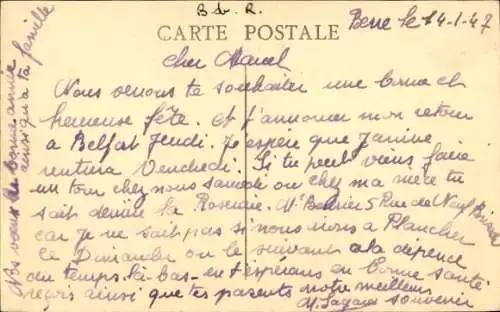 B. b. R.
Berre le 14-1-47
CARTE POSTALE
cher Marcel
Nous venons te souhaiter une bonne et
heureuse fête. et j'annonce mon retour
a Belfort Jeudi. Je espère que Janine
rentrera Vendredi. Si tu peut viens faire
un tour chez nous samedi ou chez ma mère tu
sait derière la Roseraie. 5 Rue de Neuf
car je ne sait pas si nous irons a Plancher
ce Dimanche ou le suivant ala dépence
du temps. la bas - en t'espérans en bonne santé
reçois ainsi que tes parents notre meilleurs
souvenir
Nos vœux de bonne année
ainsi qu'a ta famille